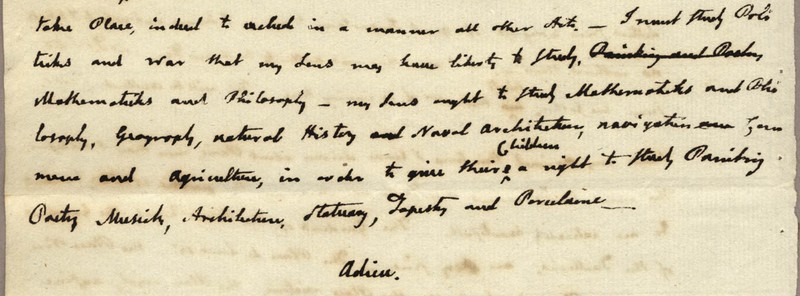 take Place, indeed to exclude in a manner all other Arts. — I must study Poli
ticks and War that my sons may have liberty to study, Painting and Poetry
Mathematicks and Philosophy — my sons ought to study Mathematicks and Phi
losophy, Geography, natural History and Naval Architecture, navigation and Com
Children
merce and Agriculture, in order to give their a right to study Painting
Poetry Musick, Architecture, Statuary, Tapestry and Porcelaine —
Adieu.